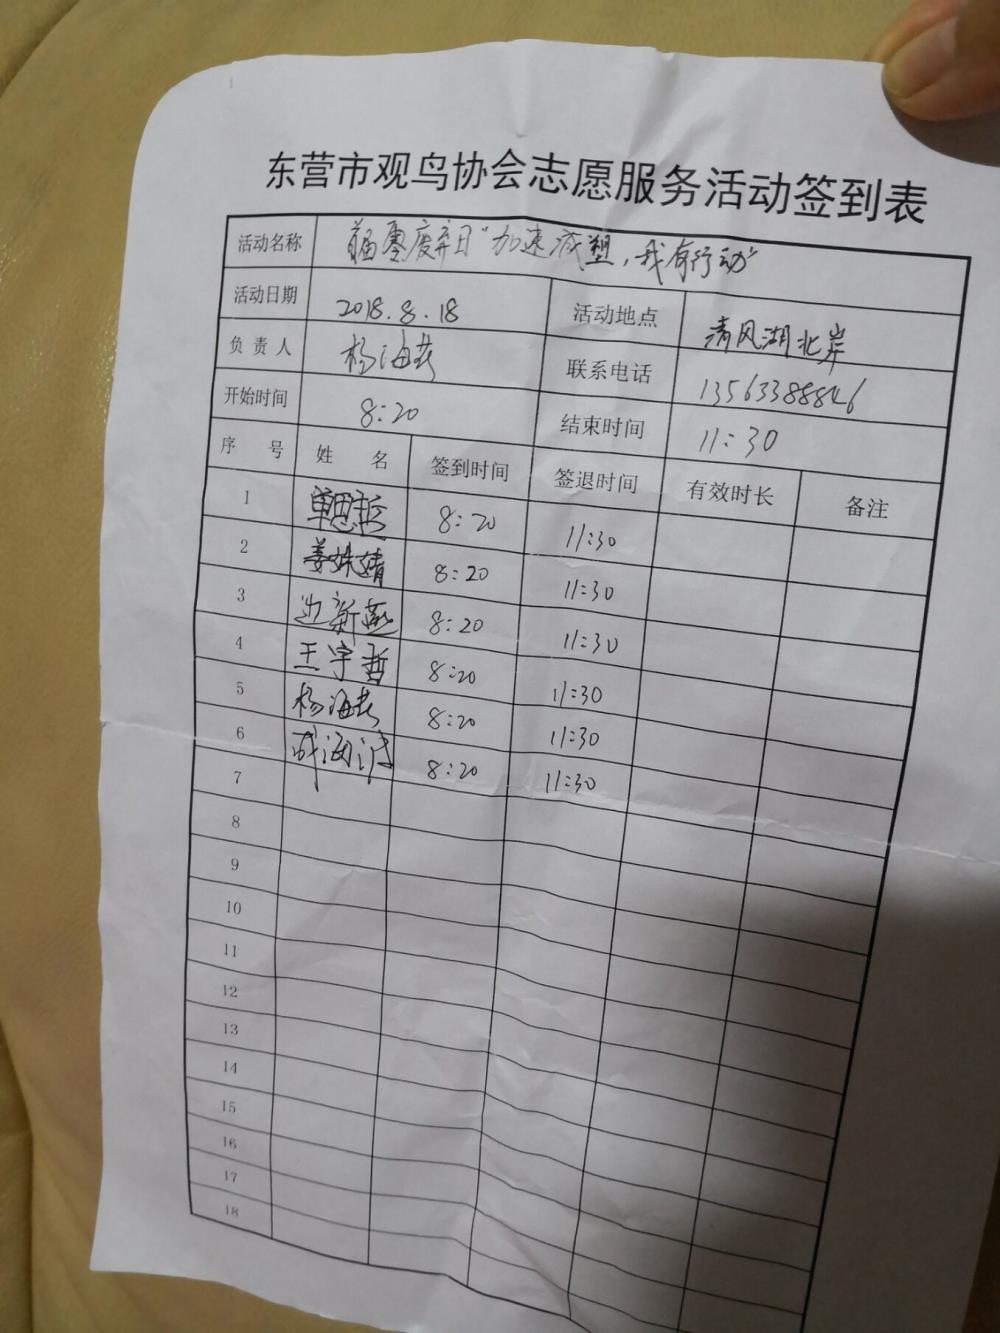 东营市观鸟协会志愿服务活动签到表
活动名称 首届零废弃日“加速减塑，我有行动”
活动日期 2018.8.18 活动地点 清风湖北岸
负责人 杨海 联系电话 13563388846
开始时间 8:20 结束时间 11:30
序号 姓名 签到时间 签退时间 有效时长 备注
1 单思哲 8:20 11:30
2 姜姝婧 8:20 11:30
3 边新燕 8:20 11:30
4 王宇哲 8:20 11:30
5 杨海 8:20 11:30
6 成海 8:20 11:30
7
8
9
10
11
12
13
14
15
16
17
18